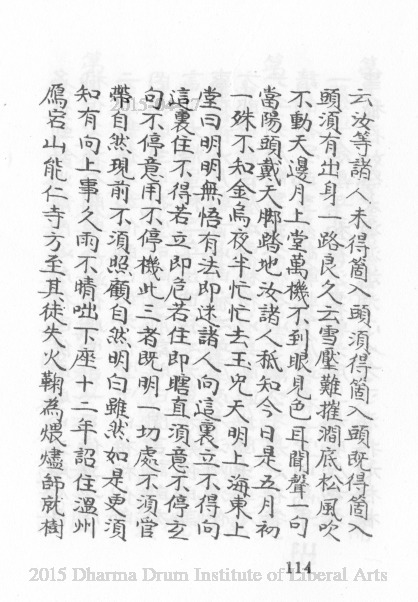 云汝等諸人未得箇入頭須得箇入頭既得箇入
頭須有出身一路良久云雪壓難摧澗底松風吹
不動天邊月上堂萬機不到眼見色耳聞聲一句
當陽頭戴天脚踏地汝諸人秪知今日是五月初
一殊不知金烏夜半忙忙去玉兔天明上海東上
堂曰明明無悟有法即迷諸人向這裏立不得向
這裏住不得若立即危若住即瞎直須意不停玄
句不停意用不停機此三者既明一切處不須管
帶自然現前不須照顧自然明白雖然如是更須
知有向上事久雨不晴咄下座十二年詔住溫州
鴈宕山能仁寺方至其徒失火鞠為煨燼師就樹
114
2015 Dharma Drum Institute of Liberal Arts